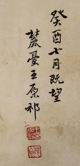 癸酉七月既望
麓臺王原祁